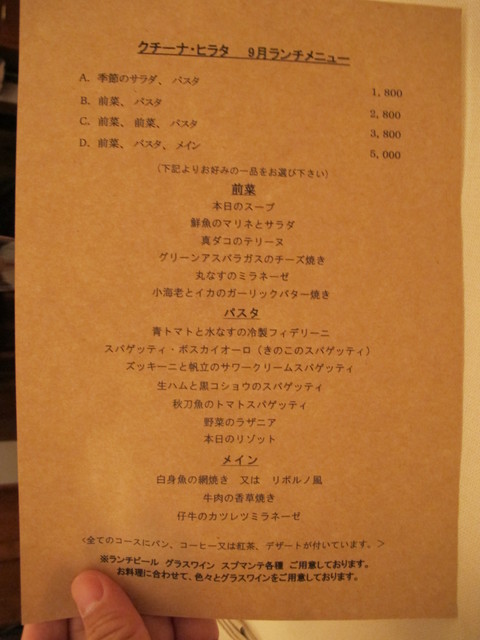 クチーナ・ヒラタ 9月ランチメニュー
A. 季節のサラダ、パスタ 1,800
B. 前菜、パスタ 2,800
C. 前菜、前菜、パスタ 3,800
D. 前菜、パスタ、メイン 5,000
(下記よりお好みの一品をお選び下さい)
前菜
本日のスープ
鮮魚のマリネとサラダ
真ダコのテリーヌ
グリーンアスパラガスのチーズ焼き
丸なすのミラネーゼ
小海老とイカのガーリックバター焼き
パスタ
青トマトと水なすの冷製フィデリーニ
スパゲッティ・ボスカイオーロ(きのこのスパゲッティ)
ズッキーニと帆立のサワークリームスパゲッティ
生ハムと黒コショウのスパゲッティ
秋刀魚のトマトスパゲッティ
野菜のラザニア
本日のリゾット
メイン
白身魚の網焼き 又は リボルノ風
牛肉の香草焼き
仔牛のカツレツミラネーゼ
<全てのコースにパン、コーヒー又は紅茶、デザートが付いています。>
※ランチビール グラスワイン スプマンテ各種 ご用意しております。
お料理に合わせて、色々とグラスワインをご用意しております。